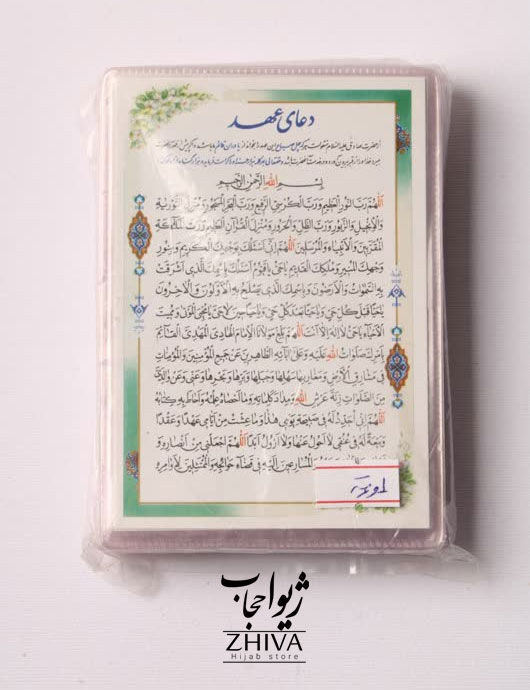 دعای عهد
بِسْمِ اللهِ الرَّحْمنِ الرَّحیمِ
اَللّهُمَّ رَبَّ النُّورِ الْعَظیمِ وَرَبَّ الْکُرْسِیِّ الرَّفیعِ وَرَبَّ الْبَحْرِ الْمَسْجُورِ وَمُنْزِلَ التَّوْریةِ
وَالْاِنْجیلِ وَالزَّبُورِ وَرَبَّ الظِّلِّ وَالْحَرُورِ وَمُنْزِلَ الْقُرْآنِ الْعَظیمِ وَرَبَّ الْمَلائِکَةِ
الْمُقَرَّبینَ وَالْاَنْبِیاءِ وَالْمُرْسَلینَ اَللّهُمَّ اِنّی اَسْئَلُکَ بِوَجْهِکَ الْکَریمِ وَبِنُورِ
وَجْهِکَ الْمُنیرِ وَمُلْکِکَ الْقَدیمِ یا حَیُّ یا قَیُّومُ اَسْئَلُکَ بِاسْمِکَ الَّذی اَشْرَقَتْ
بِهِ السَّمواتُ وَالْاَرَضُونَ وَبِاسْمِکَ الَّذی یَصْلَحُ بِهِ الْاَوَّلُونَ وَالْاخِرُونَ
یا حَیّاً قَبْلَ کُلِّ حَیٍّ وَیا حَیّاً بَعْدَ کُلِّ حَیٍّ وَیا حَیّاً حینَ لا حَیَّ یا مُحْیِیَ الْمَوْتی وَمُمیتَ
الْاَحْیاءِ یا حَیُّ لا اِلهَ اِلّا اَنْتَ اَللّهُمَّ بَلِّغْ مَوْلانَا الْاِمامَ الْهادِیَ الْمَهْدِیَّ الْقائِمَ
بِاَمْرِکَ صَلَواتُ اللهِ عَلَیْهِ وَعَلی ابائِهِ الطّاهِرینَ عَنْ جَمیعِ الْمُؤْمِنینَ وَالْمُؤْمِناتِ
فی مَشارِقِ الْاَرْضِ وَمَغارِبِها سَهْلِها وَجَبَلِها وَبَرِّها وَبَحْرِها وَعَنّی وَعَنْ والِدَیَّ
مِنَ الصَّلَواتِ زِنَةَ عَرْشِ اللهِ وَمِدادَ کَلِماتِهِ وَما اَحْصاهُ عِلْمُهُ وَاَحاطَ بِهِ کِتابُهُ
اَللّهُمَّ اِنّی اُجَدِّدُ لَهُ فی صَبیحَةِ یَوْمی هذا وَما عِشْتُ مِنْ اَیّامی عَهْداً وَعَقْداً
وَبَیْعَةً لَهُ فی عُنُقی لا اَحُولُ عَنْها وَلا اَزُولُ اَبَداً اَللّهُمَّ اجْعَلْنی مِنْ اَنْصارِهِ وَ
وَالْمُسارِعینَ اِلَیْهِ فی قَضاءِ حَوائِجِهِ وَالْمُمْتَثِلینَ لِاَوامِرِهِ
ژیوا حجاب
ZHIVA
Hijab store